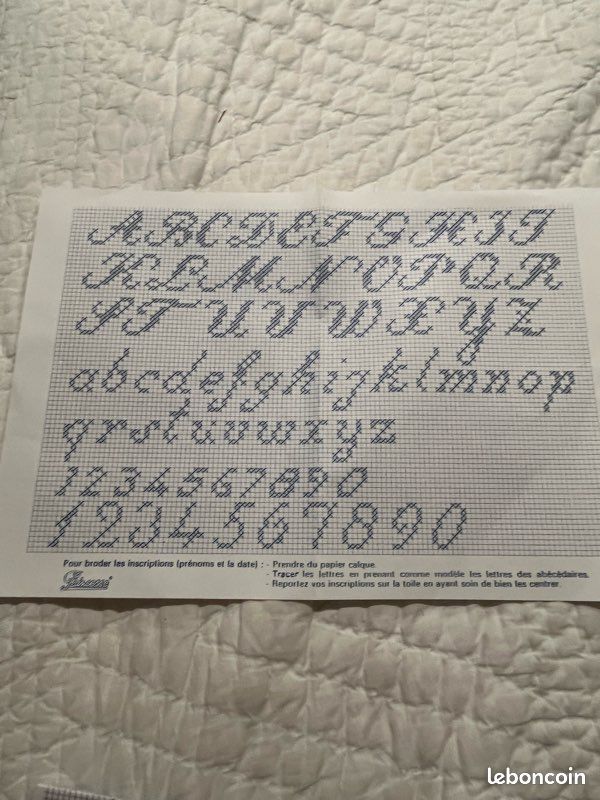 ABCDEFGHIJ
KLMNOPQR
STUVWXYZ
abcdefghijklmnop
qrstuvwxyz
1234567890
1234567890
Pour broder les inscriptions (prénoms et la date) : - Prendre du papier calque.
- Tracer les lettres en prenant comme modèle les lettres des abécédaires.
- Reportez vos inscriptions sur la toile en ayant soin de bien les centrer.
leboncoin